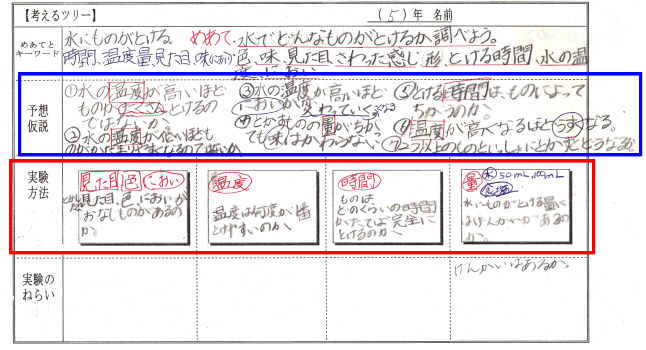 【考えるツリー】
(5)年 名前
めあてと
キーワード
水にものがとける。めあて.水でどんなものがとけるか、調べよう。
時間、温度量見た目、味におい色、味、見た目さわった感じ形、とける時間、水の温
度、におい
予想
仮説
①水の温度が高いほど
ものがたくさんとけるの
ではないか。
②水の温度が低いほども
③水の温度が高いほど
においが変わっていく
④とかすものの量がちがっ
ても味はかわらない
⑤とける時間は、ものによって
ちがうのか。
⑥温度が高くなるほどうすくなる。
⑦二つ以上のものといっしょにとかすとどうなるか
実験
方法
見た目 色 におい
見た目、色、においが
おなじものがあるの
か。
温度
温度は何度が一番
とけやすいのか、
時間
ものは、
どのくらいの時間
かたてば完全に
とけるのか、
量 水50mL,100mL
水にものがとける量に
はげんかいがあるの
か。
実験の
ねらい
げんかいはあるか。